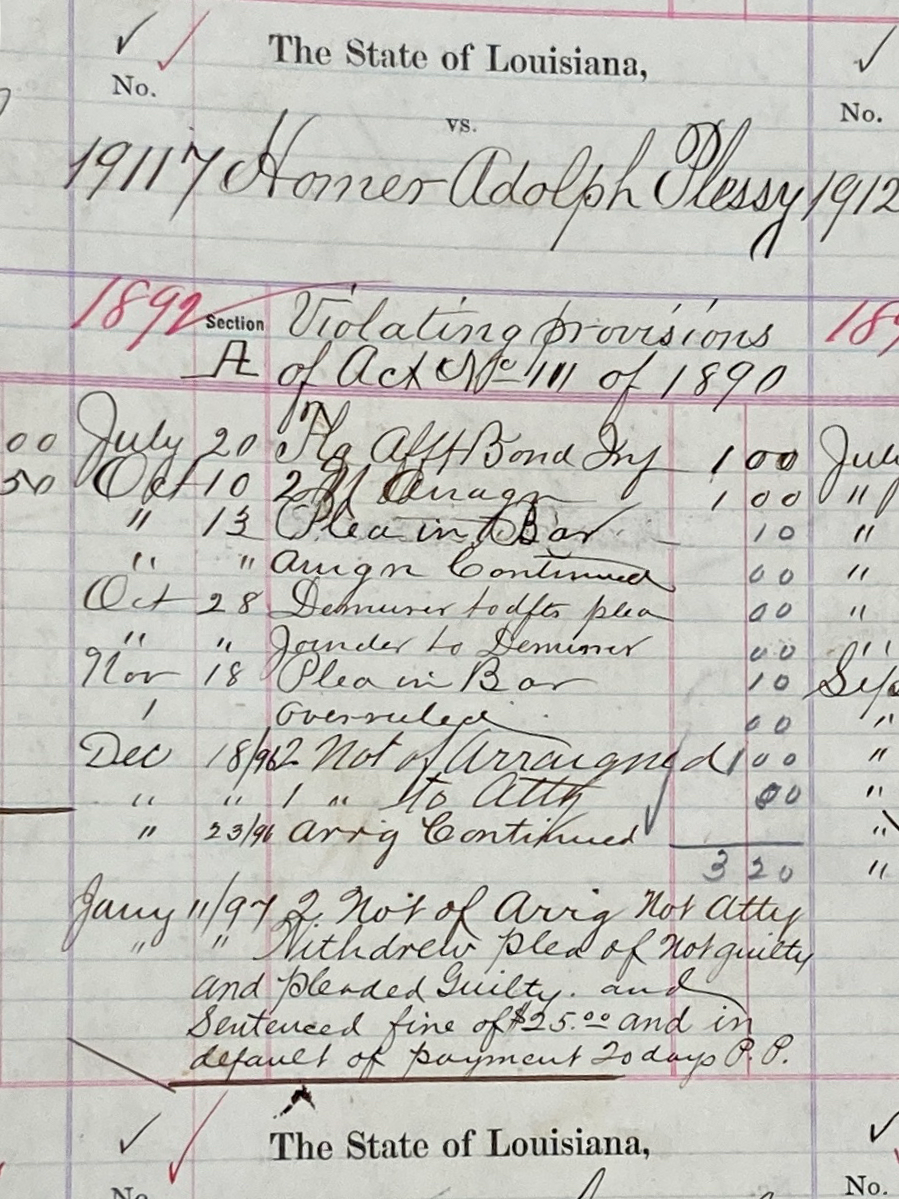 The State of Louisiana,
No.
No.
vs.
19117 Homer Adolph Plessy 1912
1892 Section Violating provisions 189
A of Act No 111 of 1890
00 July 20 Afft Bond Inf 1 00 July
50 Oct 10 2 Arragn 1 00 "
" 13 Plea in Bar 10 "
" " Arrign Continued 00 "
Oct 28 Demurrer to dfts plea 00 "
" " Joinder to Demurrer 00 "
Nov 18 Plea in Bar 10 Sep
overruled 00 "
Dec 18/96 2 Not of Arraigned 1 00 "
" " 1 " to Atty 00 "
" 23/96 Arrig Continued "
3 20 "
Jany 11/97 2 Not of Arrig Not Atty
" " Withdrew plea of Not guilty
and pleaded Guilty. and
Sentenced fine of $25.00 and in
default of payment 20 days P.P.
The State of Louisiana,
No.
No.